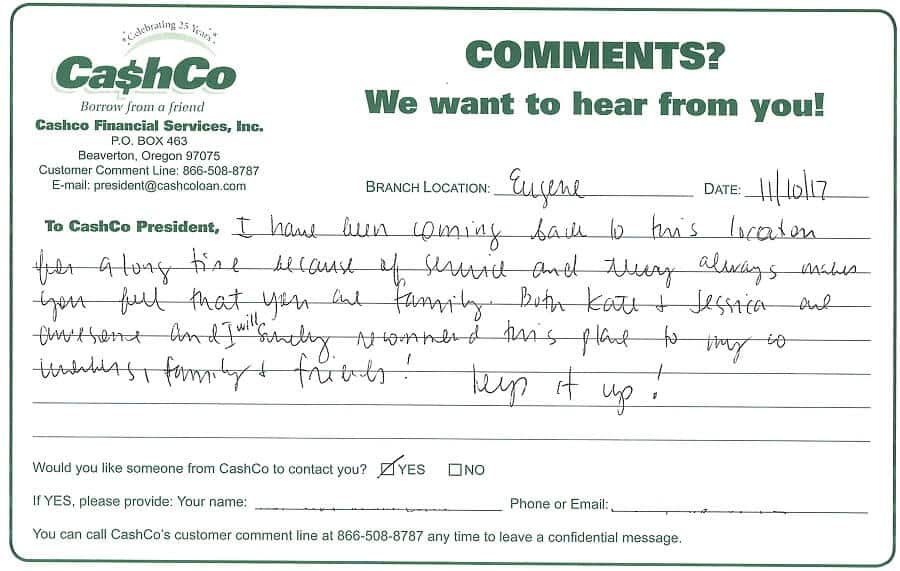 Celebrating 25 Years
Ca$hCo
Borrow from a friend
Cashco Financial Services, Inc.
P.O. BOX 463
Beaverton, Oregon 97075
Customer Comment Line: 866-508-8787
E-mail: president@cashcoloan.com
COMMENTS?
We want to hear from you!
BRANCH LOCATION: Eugene DATE: 11/10/17
To CashCo President, I have been coming back to this location
for a long time because of service and they always makes
you feel that you are family. Both Kate & Jessica are
awesome and I will surely recommend this place to my co
workers, family & friends! keep it up!
Would you like someone from CashCo to contact you? ☑YES ☐NO
If YES, please provide: Your name: Phone or Email:
You can call CashCo's customer comment line at 866-508-8787 any time to leave a confidential message.